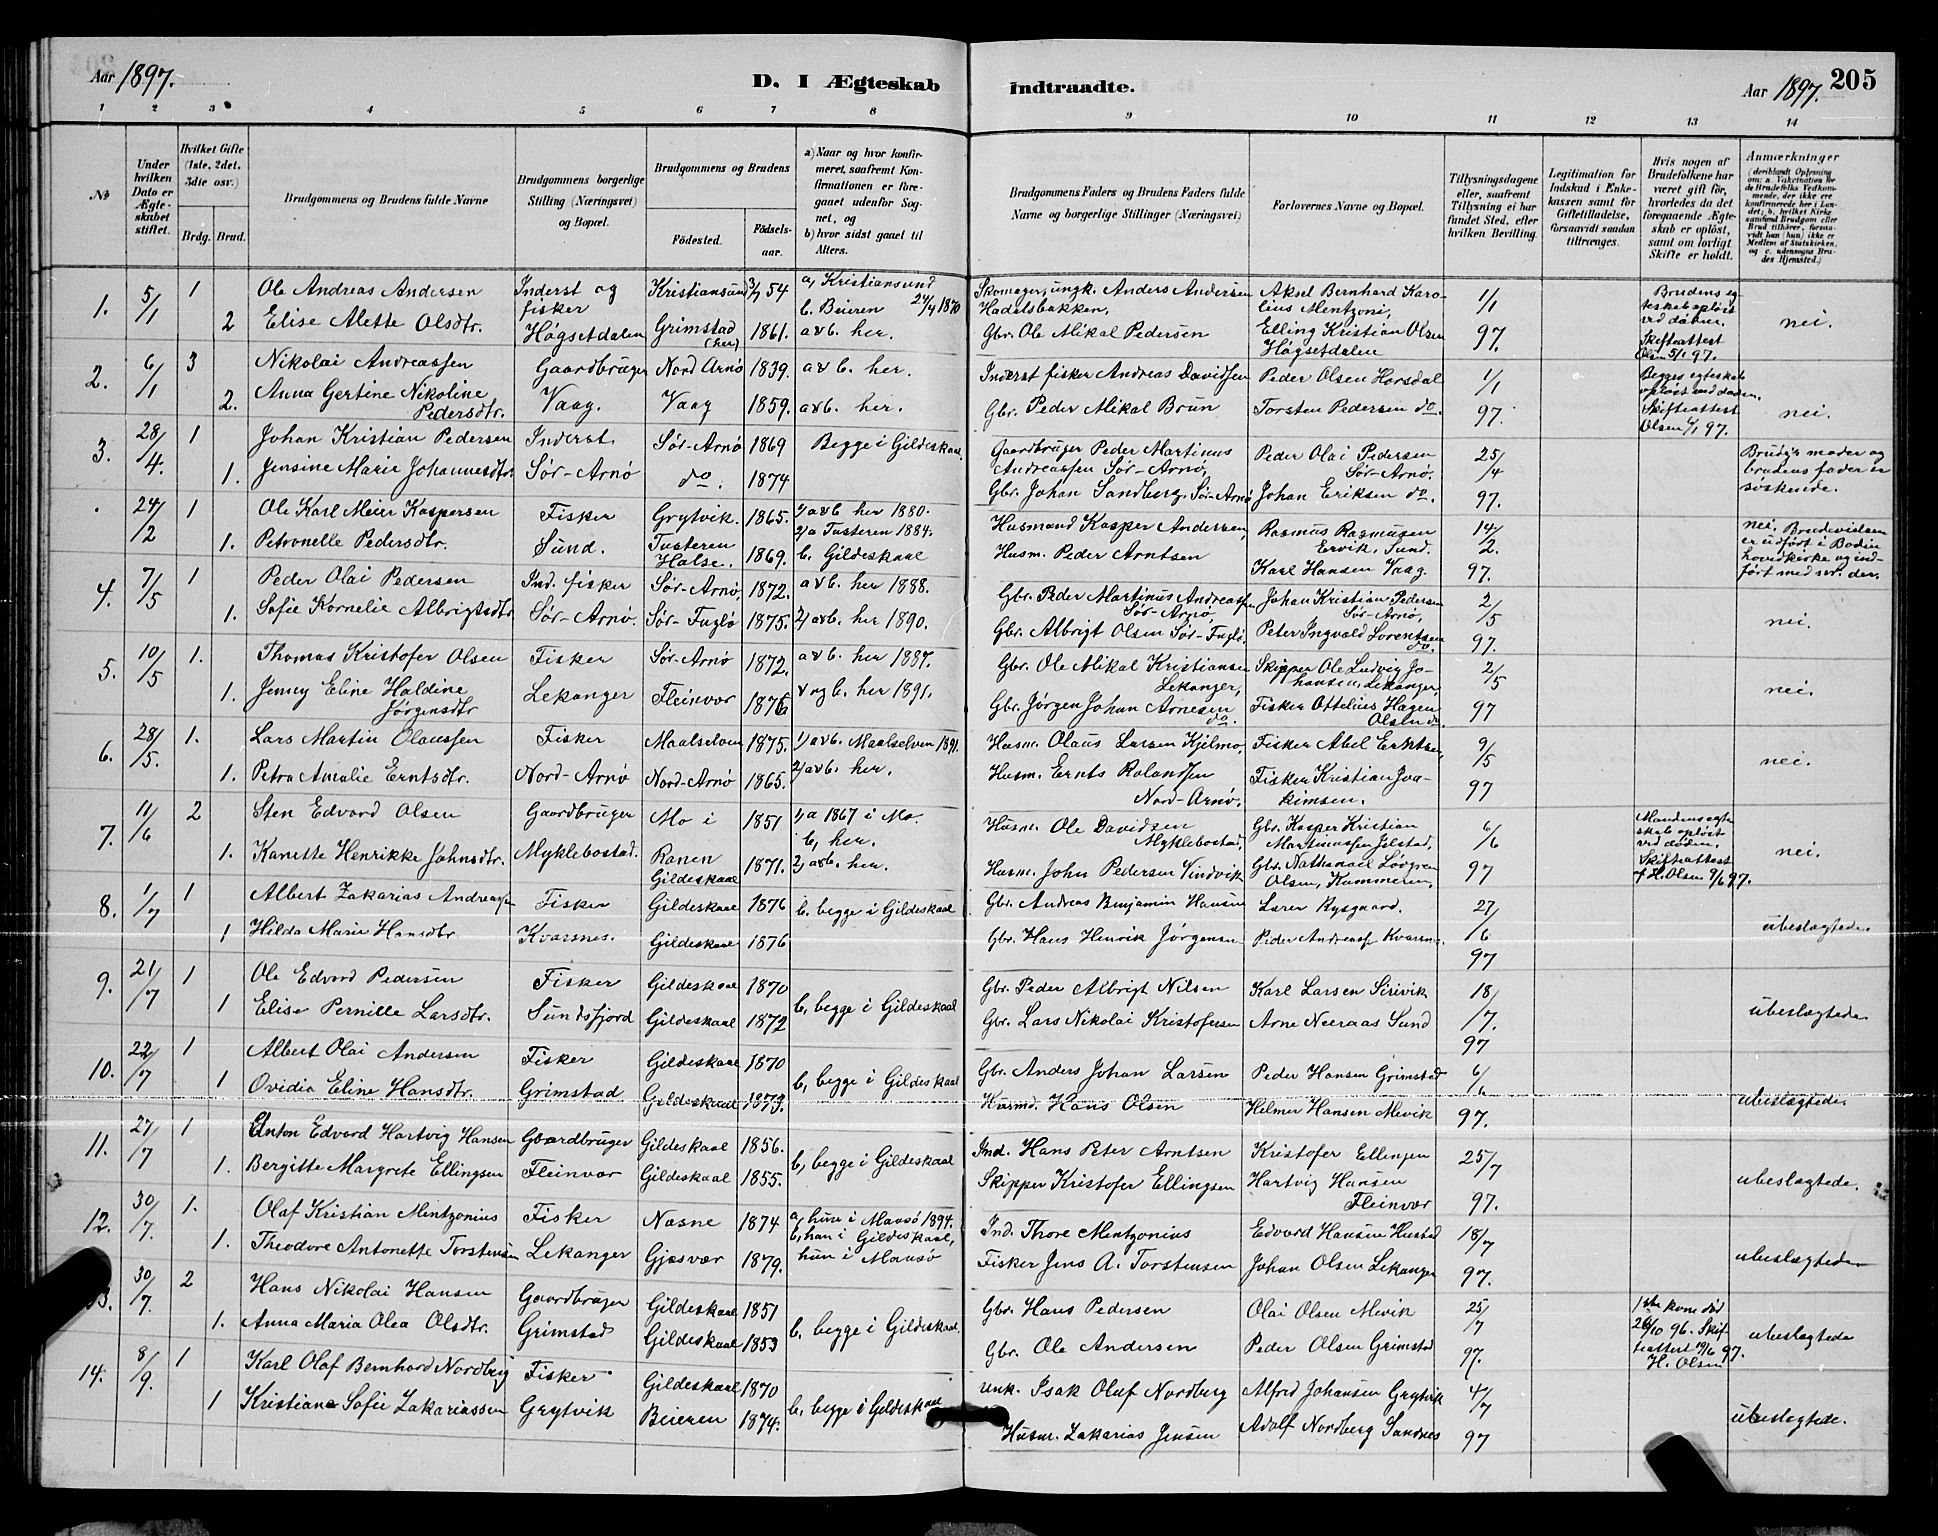 Aar 1897.
D. I Ægteskab indtraadte.
Aar 1897. 205
1 2 3 4 5 6 7 8 9 10 11 12 13 14
No
Under hvilken Dato er Ægteskabet stiftet.
Hvilket Gifte (1ste, 2det, 3die osv.)
Brdg. Brud.
Brudgommens og Brudens fulde Navne
Brudgommens borgerlige Stilling (Næringsvei) og Bopæl.
Brudgommens og Brudens
Födested.
Födselsaar.
a) Naar og hvor konfirmeret, saafremt Konfirmationen er foregaaet udenfor Sognet, og
b) hvor sidst gaaet til Alters.
Brudgommens Faders og Brudens Faders fulde Navne og borgerlige Stillinger (Næringsvei)
Forlovernes Navne og Bopæl.
Tillysningsdagene eller, saafremt Tillysning ei har fundet Sted, efter hvilken Bevilling.
Legitimation for Indskud i Enkekassen samt for Giftetilladelse, forsaavidt saadan tiltrænges.
Hvis nogen af Brudefolkene har været gift før, hvorledes da det foregaaende Ægteskab er oplöst, samt om lovligt Skifte er holdt.
Anmærkninger
(deriblandt Oplysning om: a. Vakcination for de Brudefolks Vedkommende, der ikke ere konfirmerede her i Landet; b. hvilket Kirkesamfund Brudgom eller Brud tilhörer, forsaavidt han (hun) ikke er Medlem af Statskirken, og c. udensogns Brudes Hjemsted.)
1. 5/1 1 Ole Andreas Andersen Inderst og fisker Kristiansund 3/7 54 a, Kristiansund 24/4 1870 b. Beieren Skomager, ungk. Anders Andersen Hadelsbakken. Aksel Bernhard Karolius Mentzoni, 1/1 Brudens egteskab opløst ved døden.
2 Elise Alette Olsdtr. Høgsetdalen Grimstad (her) 1861. a & b. her. Gbr. Ole Mikal Pedersen Elling Kristian Olsen Høgsetdalen 97. Skifteattest Olsen 5/1 97. nei.
2. 6/1 3 Nikolai Andreassen Gaardbruger Nord Arnø 1839. a & b. her. Inderst fisker Andreas Davidsen Peder Olsen Horsdal 1/1 Begges egteskab opløst ved døden.
2. Anna Gertine Nikoline Pedersdtr. Vaag. Vaag 1859. a & b. her. Gbr. Peder Mikal Brun Torsten Pedersen do. 97. Skifteattest Olsen 5/1 97. nei.
3. 28/4. 1 Johan Kristian Pedersen Inderst Sør-Arnø 1869 Begge i Gildeskaal. Gaardbruger Peder Martinus Andreassen Sør-Arnø, Peder Olai Pedersen Sør-Arnø. 25/4 Brudg's moder og brudens fader er søskende.
1. Jensine Marie Johannesdtr. Sør-Arnø do. 1874 Gbr. Johan Sandberg, Sør-Arnø Johan Eriksen do. 97.
24/2 1 Ole Karl Meier Kaspersen Fisker Grytvik. 1865. 1/ a & b her 1880. Husmand Kasper Andersen, Rasmus Rasmusen Ervik, Sund. 14/2. nei. Brudevielsen er udført i Bodin hovedkirke og indført med nr. der.
1. Petronelle Pedersdtr. Sund. Tusteren Halse. 1869. 2/a Tusteren 1884. b. Gildeskaal Husm. Peder Arntsen Karl Hansen Vaag. 97.
4. 7/5 1 Peder Olai Pedersen Ind. fisker Sør-Arnø, 1872. a & b. her 1888. Gbr. Peder Martinus Andreassen Sør-Arnø, Johan Kristian Pedersen Sør-Arnø, 2/5
1. Sofie Kornelie Albrigtsdtr. Sør-Arnø. Sør-Fuglø 1875. 2/ a & b. her 1890. Gbr. Albrigt Olsen Sør-Fuglø. Peter Ingvald Lorentsen do. 97. nei.
5. 10/5 1. Thomas Kristofer Olsen Fisker Sør-Arnø 1872. a & b. her 1887. Gbr. Ole Mikal Kristiansen Lekanger, Skipper Ole Ludvig Johansen, Lekanger, 2/5
1. Jenny Eline Haldine Jørgensdtr Lekanger Fleinvær 1876 a og b. her 1891. Gbr. Jørgen Johan Arnesen do. Fisker Ottelius Hagen Olsen do. 97 nei.
6. 28/5. 1. Lars Martin Olaussen Fisker Maalselven 1875. 1/ a & b. Maalselven 1891. Husm. Olaus Larsen Kjelmo, Fisker Abel Erntsen, 9/5
1. Petra Amalie Erntsdtr. Nord-Arnø Nord-Arnø 1865. 2/ a & b. her. Husm. Ernts Rolandsen Nord-Arnø. Fisker Kristian Joakimsen. 97 nei.
7. 11/6 2 Sten Edvard Olsen Gaardbruger Mo i Ranen 1851 1/a 1867 i Mo. b, her. Husm. Ole Davidsen Myklebostad, Gbr. Kasper Kristian Martinussen Jelstad, 6/6 Mandens egteskab opløst ved døden.
1. Kanette Henrikke Johnsdtr. Myklebostad. Gildeskaal 1871. 2, a & b. her. Husm. John Pedersen Vindvik Gbr. Nathanael Løvgren Olsen, Kammeren, 97 Skifteattest af H. Olsen 9/6 97. nei.
8. 1/7 1 Albert Zakarias Andreassen Fisker Gildeskaal 1876 b. begge i Gildeskaal Gbr. Andreas Benjamin Hansen Lærer Rysgaard. 27/6
1 Hilda Marie Hansdtr. Kvarsnes. Gildeskaal 1876 Gbr. Hans Henrik Jørgensen Peder Andreass. Kvarsn. 97 ubeslægtede.
9. 21/7 1 Ole Edvard Pedersen Fisker Gildeskaal 1870 b, begge i Gildeskaal Gbr. Peder Albrigt Nilsen Karl Larsen Sirivik 18/7.
1 Elise Pernille Larsdtr. Sundsfjord Gildeskaal 1872 Gbr. Lars Nikolai Kristofersen Arne Neeraas Sund 97 ubeslægtede.
10. 22/7 1 Albert Olai Andersen Fisker Gildeskaal 1870 b, begge i Gildeskaal Gbr. Anders Johan Larsen Peder Hansen Grimstad 6/6
1 Ovidia Eline Hansdtr. Grimstad Gildeskaal 1873. Husmd. Hans Olsen Helmer Hansen Mevik 97. ubeslægtede.
11. 27/7 1 Anton Edvard Hartvig Hansen Gaardbruger Gildeskaal 1856. b, begge i Gildeskaal Ind. Hans Peter Arntsen Kristofer Ellingsen 25/7
1. Bergitte Margrete Ellingsen Fleinvær Gildeskaal 1855. Skipper Kristofer Ellingsen Hartvig Hansen Fleinvær 97. ubeslægtede.
12. 30/7. 1. Olaf Kristian Mentzonius Fisker Næsne 1874 a, hun i Maasø 1894. Ind. Thore Mentzonius Edvard Hansen Hustad 18/7
1. Theodore Antonette Torstensen Lekanger Gjæsvær 1879. b, han i Gildeskaal, hun i Maasø Fisker Jens A. Torstensen Johan Olsen Lekanger 97. ubeslægtede
13. 30/7. 2 Hans Nikolai Hansen Gaardbruger Gildeskaal 1851 b, begge i Gildeskaal. Gbr. Hans Pedersen Olai Olsen Mevik 25/7 1ste kone død 26/10 96. Skifteattest 19/6 97. H. Olsen
1. Anna Maria Olea Olsdtr. Grimstad Gildeskaal 1853 Gbr. Ole Andersen Peder Olsen Grimstad 97. ubeslægtede
14. 8/9. 1 Karl Olaf Bernhard Nordberg Fisker Gildeskaal 1870 b, begge i Gildeskaal unk. Isak Oluf Nordberg Alfred Johansen Grytvik 4/7
1 Kristiane Sofie Zakariassen Grytvik Beieren 1874. Husm. Zakarias Jensen Adolf Nordberg Sandnes 97 ubeslægtede.